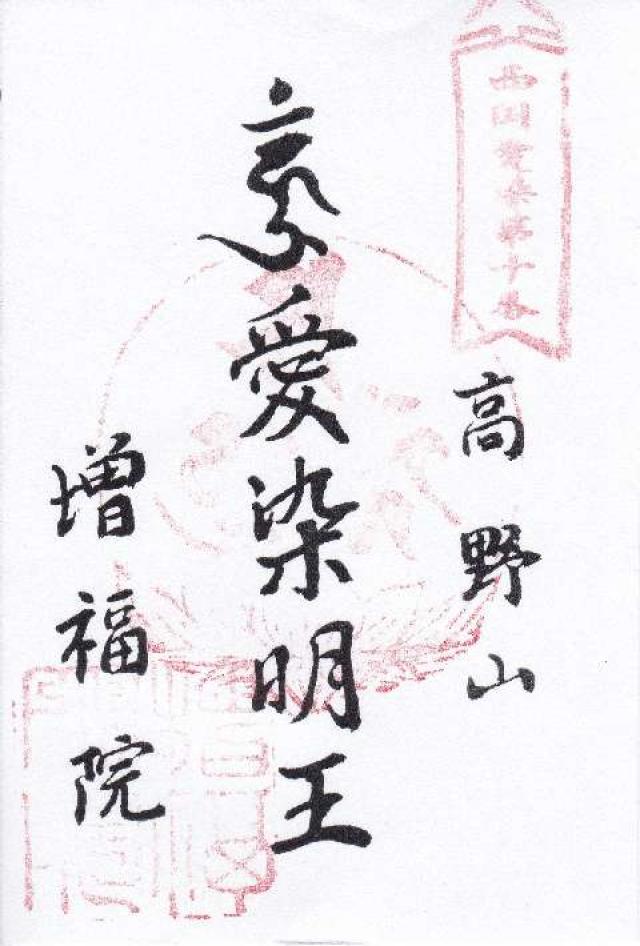 西国愛染第十番
高野山
愛染明王
増福院